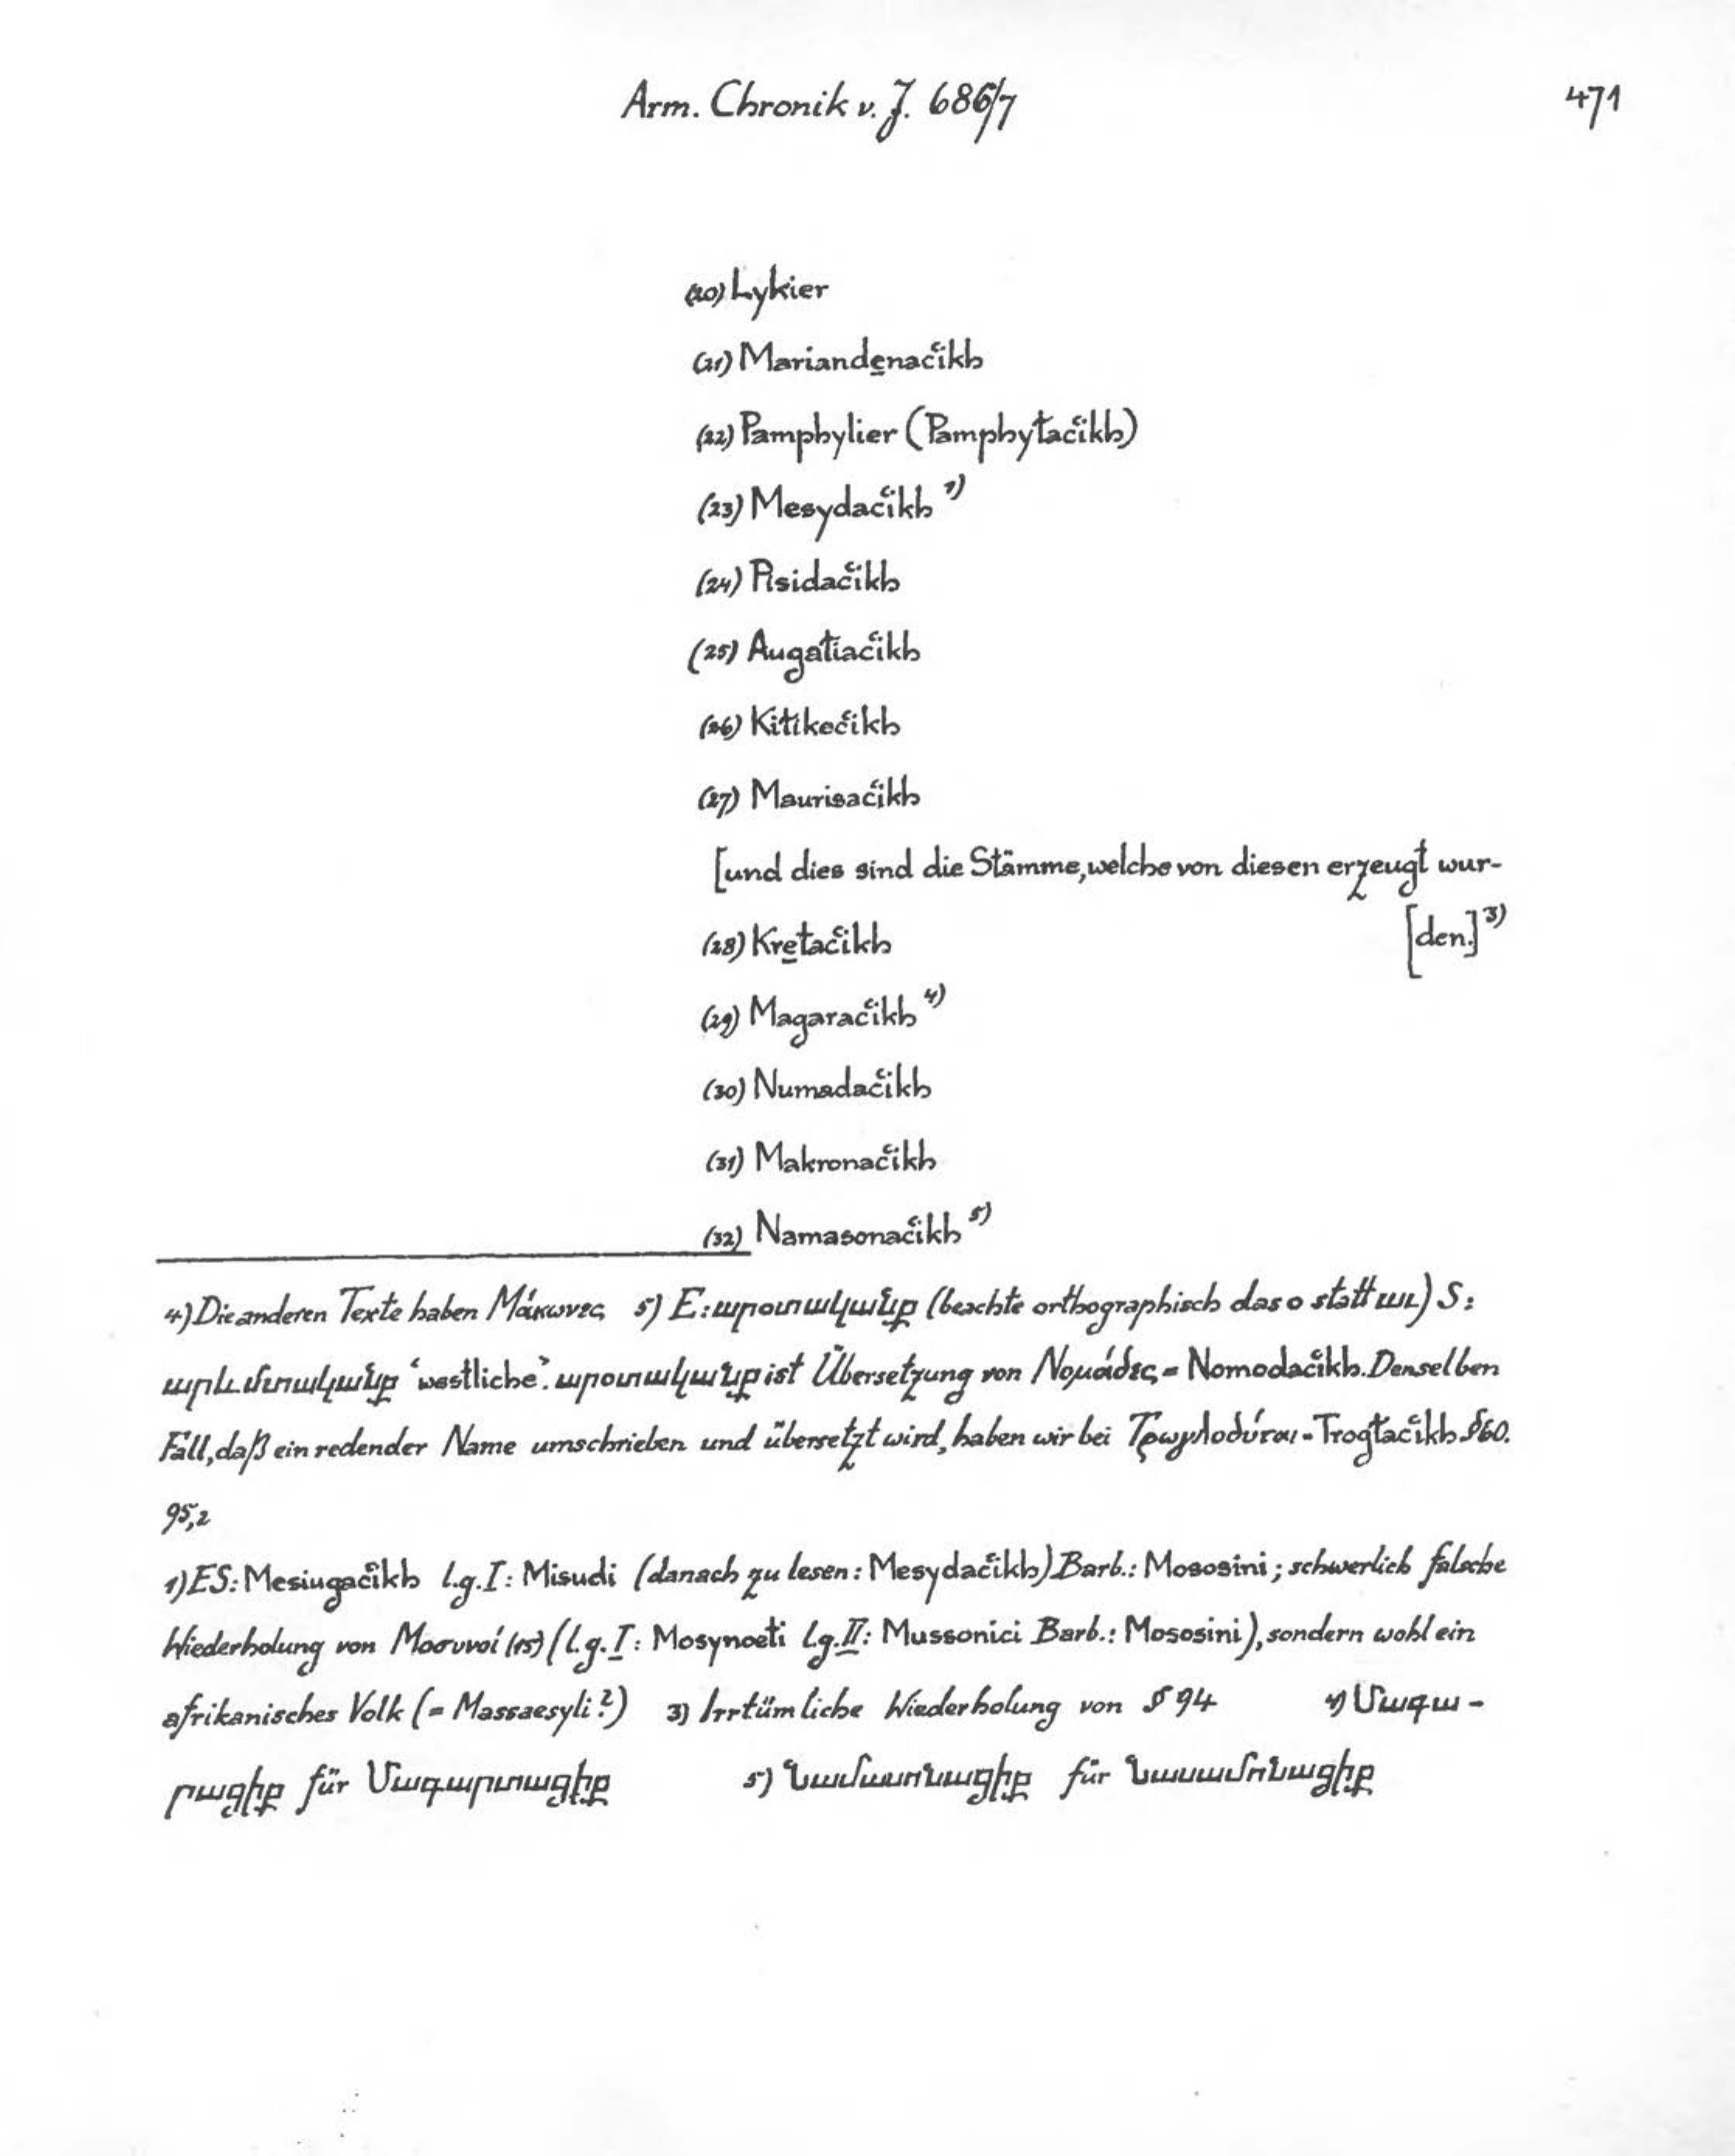 Arm. Chronik v. J. 686/7 471
(20) Lykier
(21) Mariande̱nač̔ikh
(22) Pamphylier (Pamphyłač̔ikh)
(23) Mesydač̔ikh ¹⁾
(24) Pisidač̔ikh
(25) Augałiač̔ikh
(26) Kiłikeč̔ikh
(27) Maurisač̔ikh
[und dies sind die Stämme, welche von diesen erzeugt wur-
[den.] ³⁾
(28) Kre̱tač̔ikh
(29) Magarač̔ikh ⁴⁾
(30) Numadač̔ikh
(31) Makronač̔ikh
(32) Namasonač̔ikh ⁵⁾
4) Die anderen Texte haben Μάκωνες 5) E: արօտականք (beachte orthographisch das o statt աւ) S:
արևմտականք ‘westliche’. արօտականք ist Übersetzung von Νομάδες = Nomodač̔ikh. Denselben
Fall, daß ein redender Name umschrieben und übersetzt wird, haben wir bei Τρωγλοδύται - Trogłač̔ikh §60.
95,2
1) ES: Mesiugač̔ikh l.g.I: Misudi (danach zu lesen: Mesydač̔ikh) Barb.: Mososini; schwerlich falsche
Wiederholung von Μοσυνοί (15) (l.g.I: Mosynoeti l.g.II: Mussonici Barb.: Mososini), sondern wohl ein
afrikanisches Volk (= Massaesyli?) 3) Irrtümliche Wiederholung von § 94 4) Մագա-
րացիք für Մագարտացիք 5) Նամասոնացիք für Նասամոնացիք